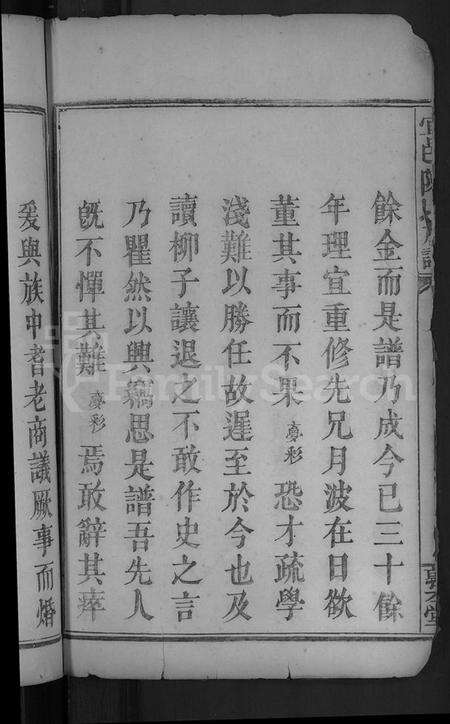 餘金而是譜乃成今已三十餘
年理宜重修先兄月波在日欲
董其事而不果 虞彩 恐才疏學
淺難以勝任故遲至於今也及
讀柳子讓退之不敢作史之言
乃瞿然以興竊思是譜吾先人
旣不憚其難 虞彩 焉敢辭其瘁
爰與族中耆老商議厥事而婚
FamilySearch